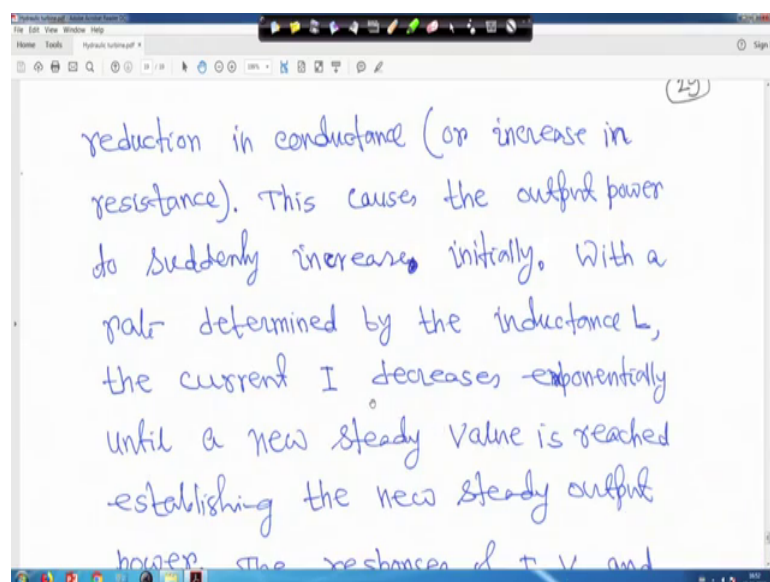 Hydraulic turbine.pdf - Adobe Acrobat Reader DC
File Edit View Window Help
Home Tools Hydraulic turbine.pdf × Sign
(29)
reduction in conductance (or increase in
resistance). This causes the output power
to suddenly increase initially. With a
rate determined by the inductance L,
the current I decreases exponentially
until a new steady value is reached
establishing the new steady output
power. The responses of I, V and